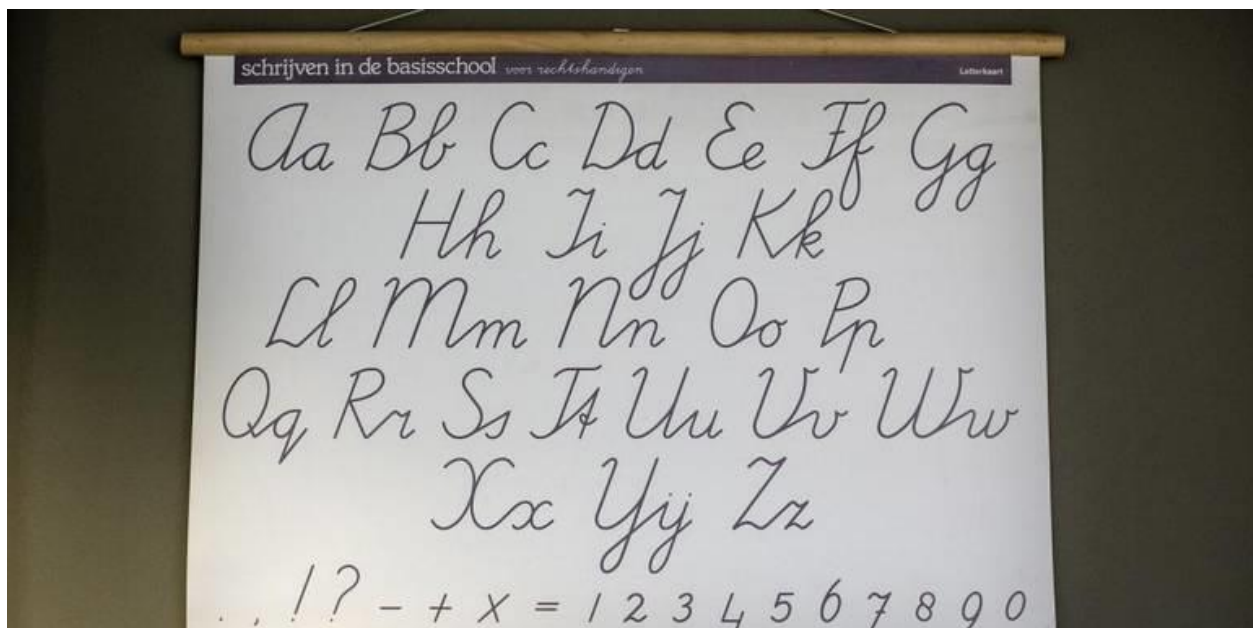 schrijven in de basisschool voor rechtshandigen Letterkaart
Aa Bb Cc Dd Ee Ff Gg
Hh Ii Jj Kk
Ll Mm Nn Oo Pp
Qq Rr Ss Tt Uu Vv Ww
Xx Yij Zz
. , ! ? - + x = 1 2 3 4 5 6 7 8 9 0